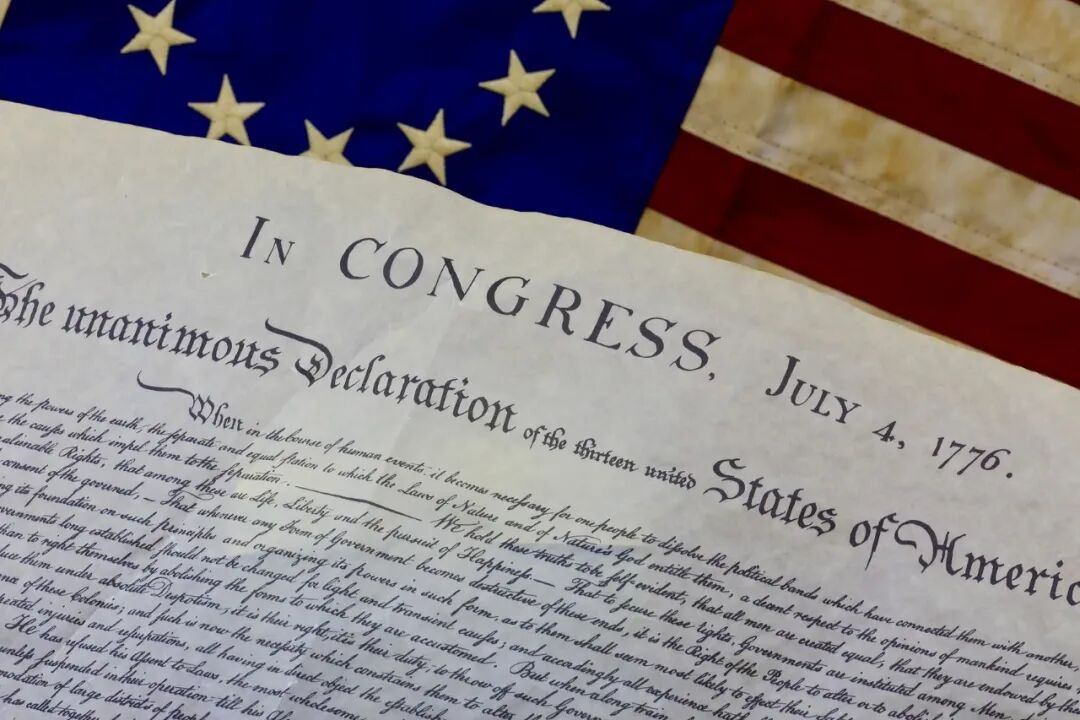 In CONGRESS, July 4, 1776.
The unanimous Declaration of the thirteen united States of America
When in the Course of human events, it becomes necessary for one people to dissolve the political bands which have connected them with another,
the powers of the earth, the separate and equal station to which the Laws of Nature and of Nature's God entitle them, a decent respect to the opinions of mankind requires
the causes which impel them to the separation. — We hold these truths to be self-evident, that all men are created equal, that they are endowed by
Rights, that among these are Life, Liberty and the pursuit of Happiness.— That to secure these rights, Governments are instituted among
consent of the governed,— That whenever any Form of Government becomes destructive of these ends, it is the Right of the People to alter or to
its foundation on such principles and organizing its powers in such form, as to them shall seem most likely to effect their
long established should not be changed for light and transient causes; and accordingly all experience hath
than to right themselves by abolishing the forms to which they are accustomed. But when a long train
them under absolute Despotism, it is their right, it is their duty, to throw off such
of these Colonies; and such is now the necessity which constrains them to alter
injuries and usurpations, all having in direct object the
He has refused his Assent to Laws, the most wholesome
suspended in their operation till his
of large districts of
has called together